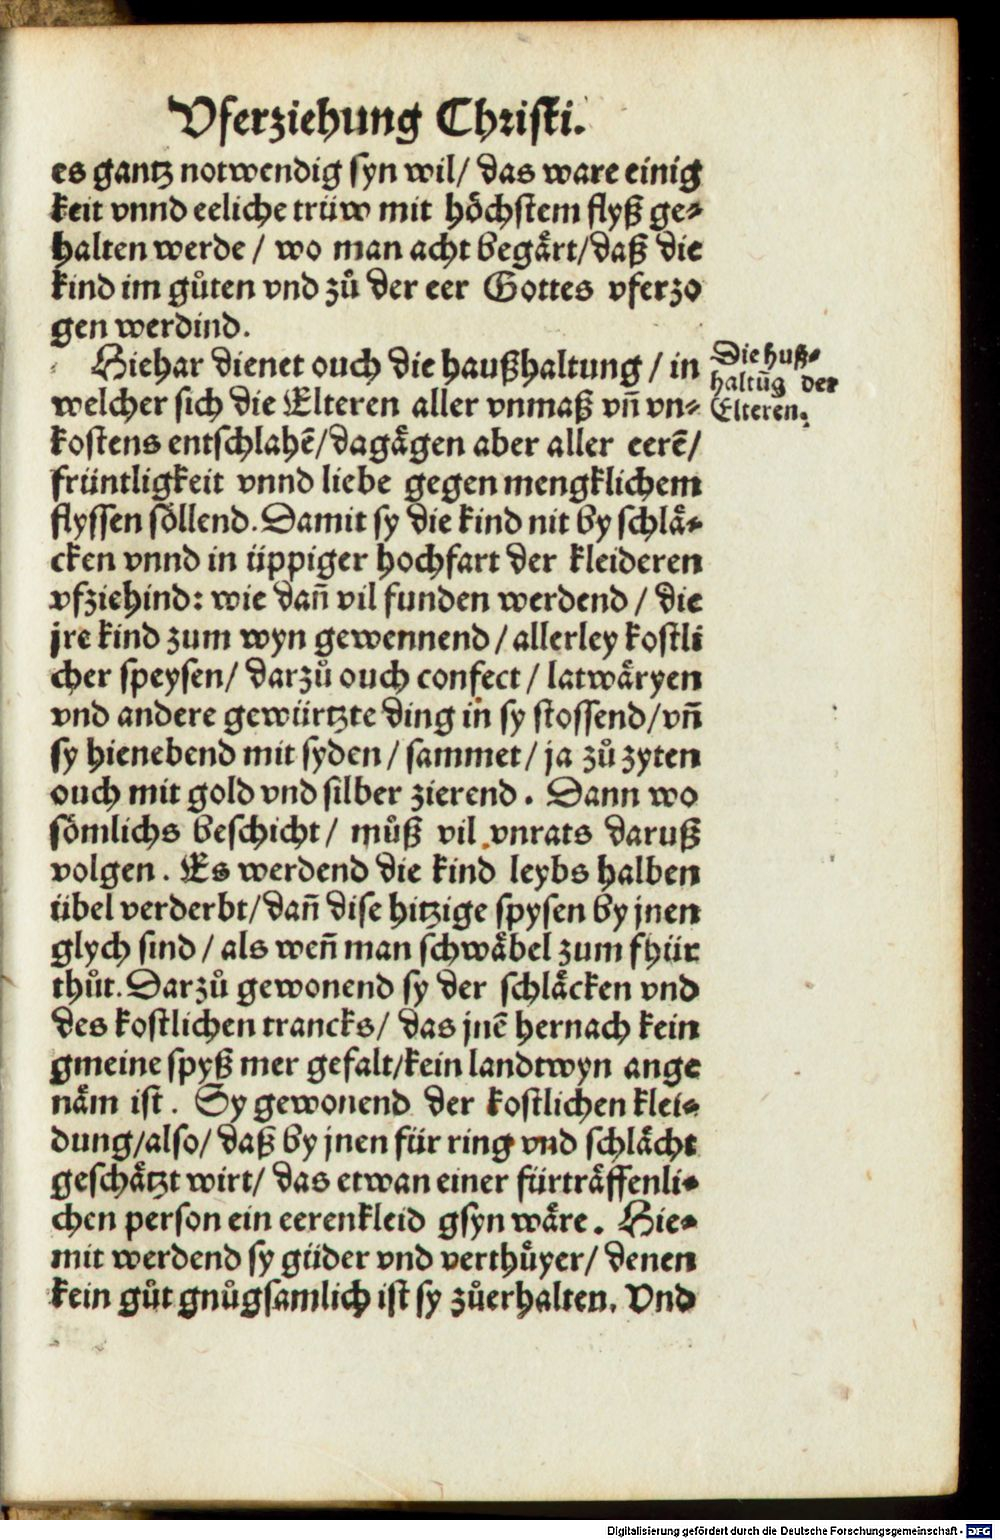 Vferziehung Christi.
es gantz notwendig syn wil/ das ware einig
keit vnnd eeliche trüw mit höchstem flyß ge⸗
halten werde / wo man acht begärt/daß die
kind im gůten vnd zů der eer Gottes vferzo
gen werdind.
Hiehar dienet ouch die haußhaltung / in
welcher sich die Elteren aller vnmaß vñ vn⸗
kostens entschlahē/dagägen aber aller eerē/
früntligkeit vnnd liebe gegen mengklichem
flyssen söllend. Damit sy die kind nit by schlä⸗
cken vnnd in üppiger hochfart der kleideren
vfziehind: wie dañ vil funden werdend / die
jre kind zum wyn gewennend / allerley kostli
cher speysen/ darzů ouch confect / latwäryen
vnd andere gewürtzte ding in sy stossend/vñ
sy hienebend mit syden / sammet / ja zů zyten
ouch mit gold vnd silber zierend. Dann wo
sömlichs beschicht/ můß vil vnrats daruß
volgen. Es werdend die kind leybs halben
übel verderbt/dañ dise hitzige spysen by jnen
glych sind / als weñ man schwäbel zum fhür
thůt. Darzů gewonend sy der schläcken vnd
des kostlichen trancks/ das jnē hernach kein
gmeine spyß mer gefalt/kein landtwyn ange
näm ist. Sy gewonend der kostlichen klei⸗
dung/also/ daß by jnen für ring vnd schlächt
geschätzt wirt/ das etwan einer fürträffenli⸗
chen person ein eerenkleid gsyn wäre. Hie⸗
mit werdend sy güder vnd verthůyer/ denen
kein gůt gnůgsamlich ist sy zůerhalten. Vnd
Die huß⸗
haltūg der
Elteren.
Digitalisierung gefördert durch die Deutsche Forschungsgemeinschaft - DFG